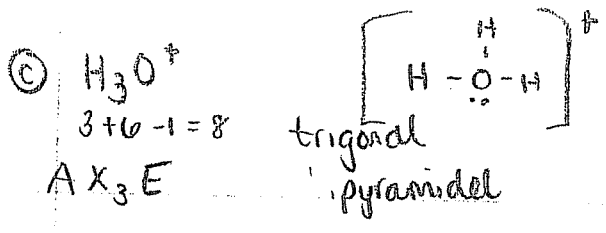 Ⓒ H₃O⁺
3+6-1=8
AX₃E
H
H-O-H
+
trigonal
pyramidel